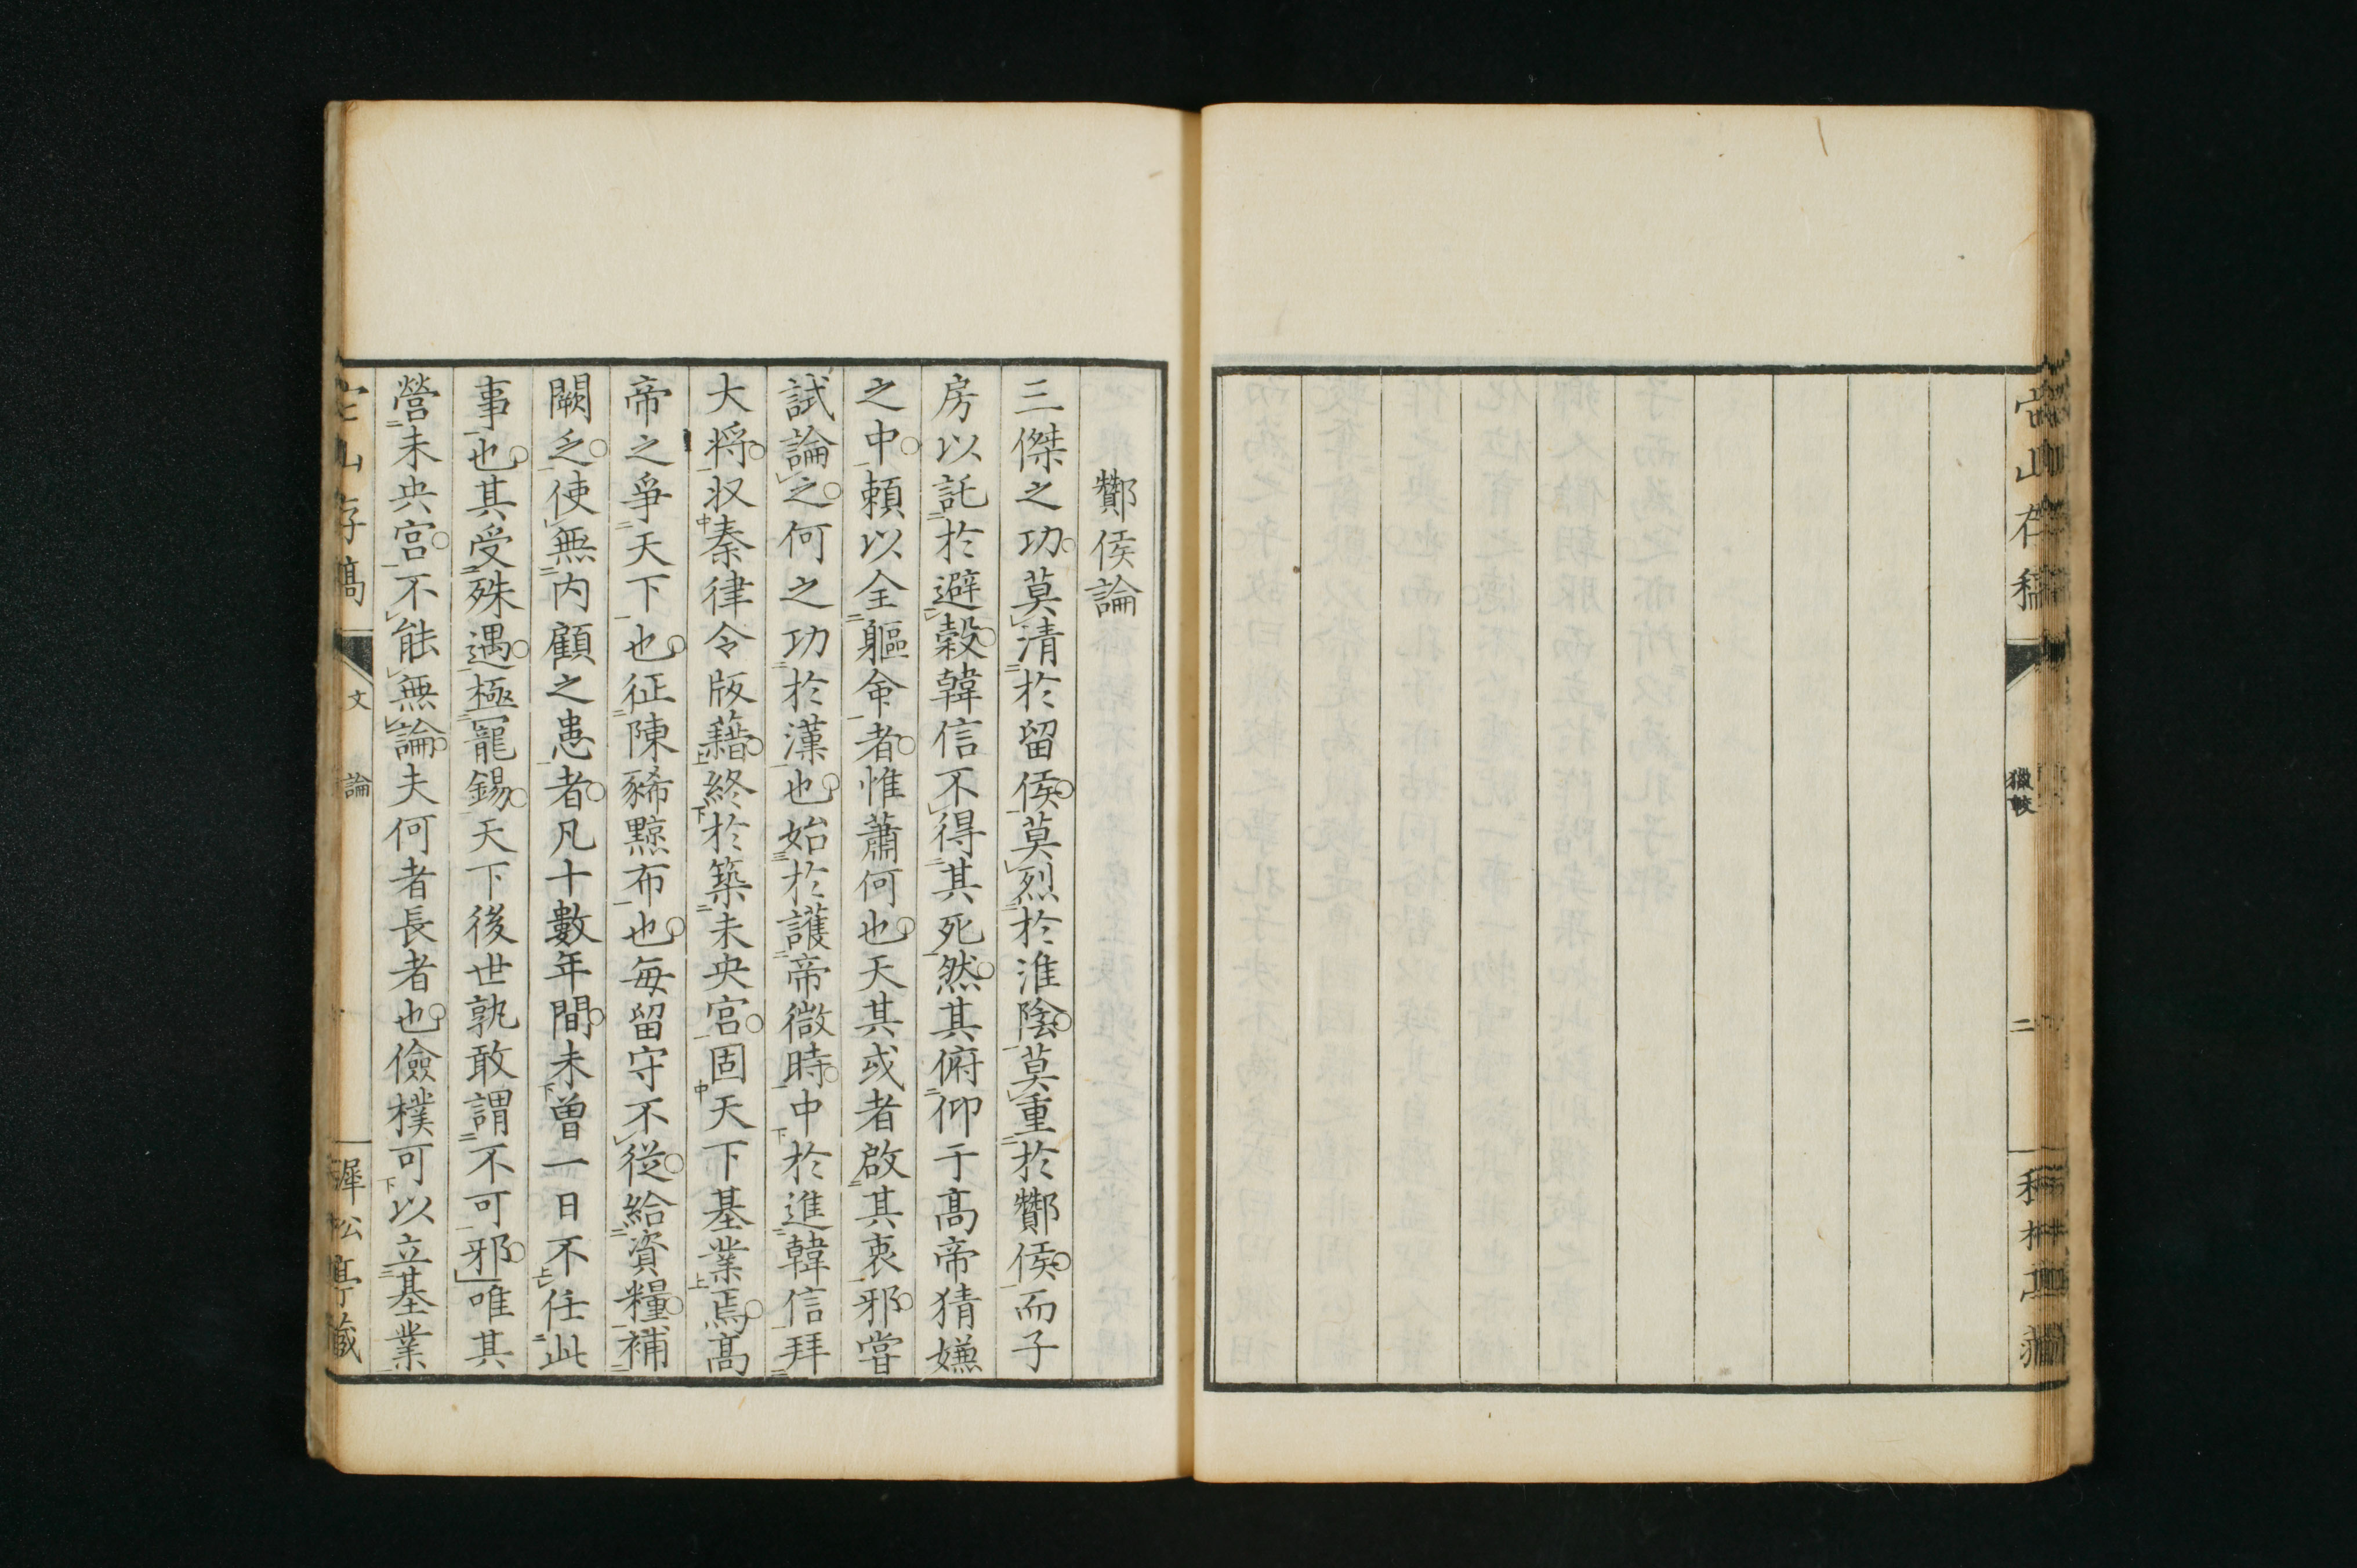 獵較
二
酇侯論
三傑之功莫清於留侯莫烈於淮陰莫重於酇侯而子
房以託於避穀韓信不得其死然其俯仰于高帝猜嫌
之中頼以全軀命者惟蕭何也天其或者啟其衷邪嘗
試論之何之功於漢也始於護帝微時中於進韓信拜
大将収秦律令版藉終於築未央宮固天下基業焉高
帝之爭天下也征陳豨黥布也每留守不從給資糧補
闕乏使無内顧之患者凡十數年間未曽一日不任此
事也其受殊遇極寵錫天下後世孰敢謂不可邪唯其
營未央宮不能無論夫何者長者也儉樸可以立基業
文
論